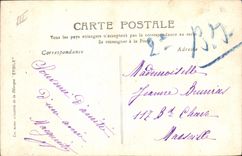 CARTE POSTALE
Tous les pays étrangers n'acceptent pas la correspondance au recto
Se renseigner à la Poste
Correspondance
Adresse
Souvenir d'amitié
d'une amie
Marguerite
Mademoiselle
Jeanne
112 Bd Chave
Marseille